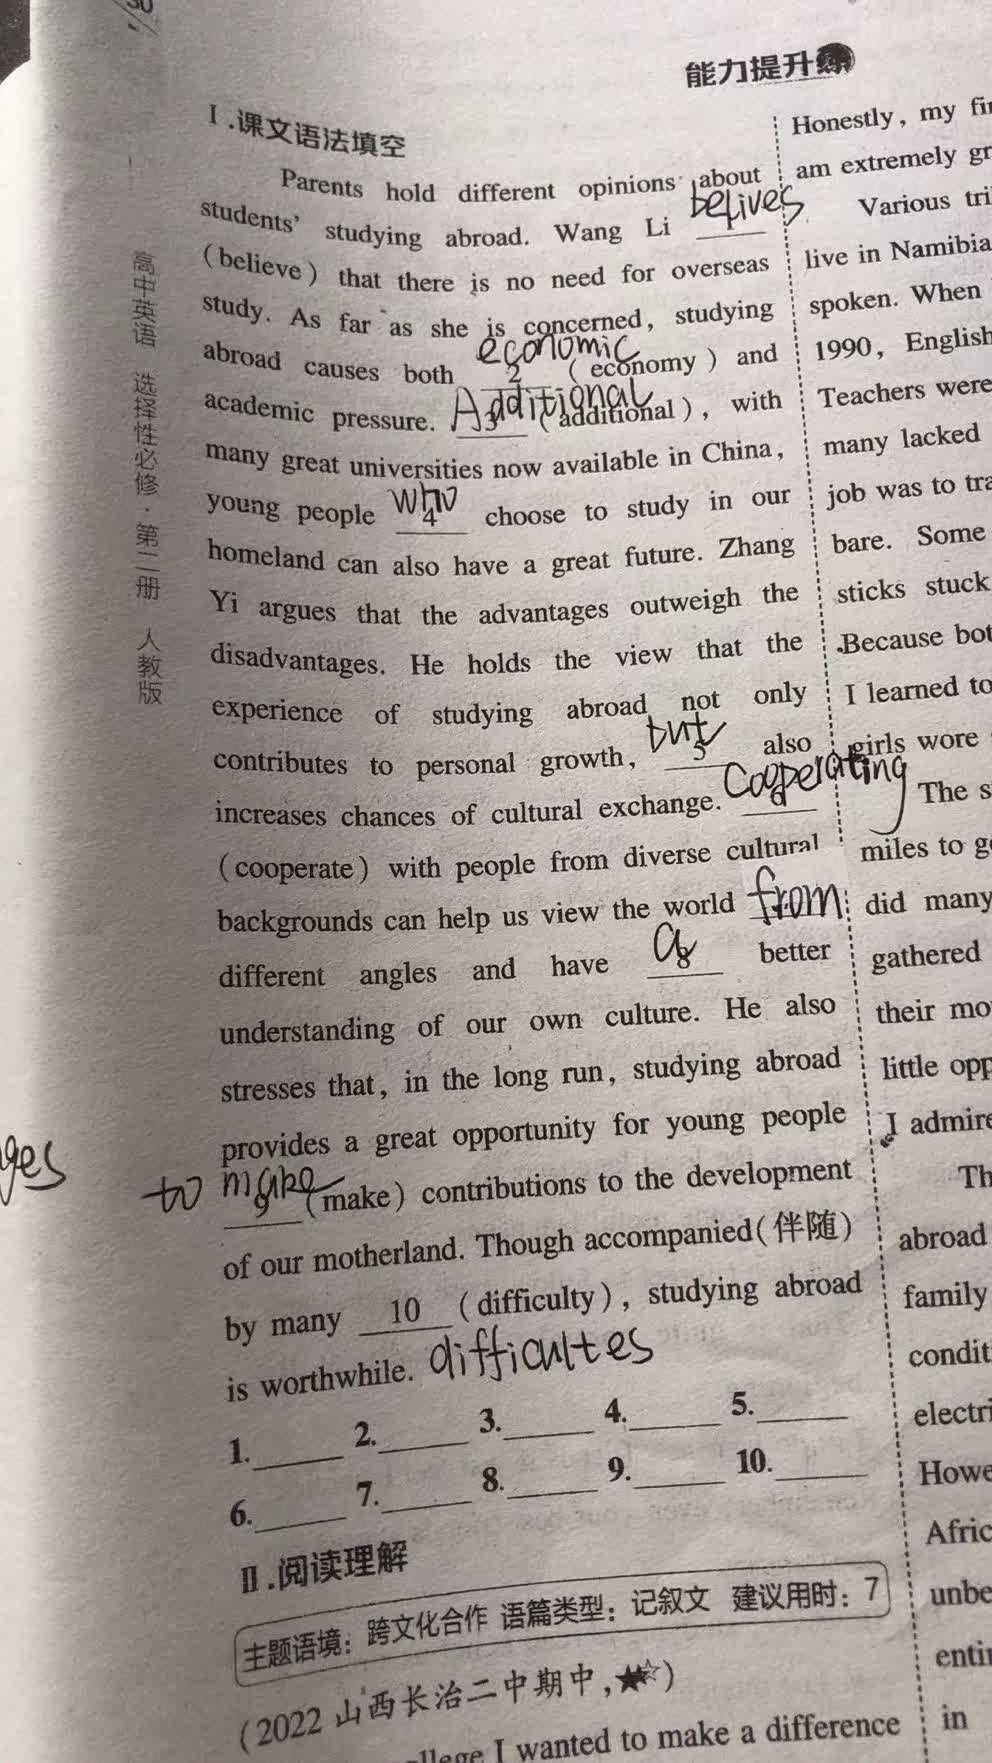 能力提升练
Ⅰ.课文语法填空
Parents hold different opinions about
students' studying abroad. Wang Li belives 1
(believe) that there is no need for overseas
study. As far as she is concerned, studying
abroad causes both economic 2 (economy) and
academic pressure. Additional 3 (additional), with
many great universities now available in China,
young people who 4 choose to study in our
homeland can also have a great future. Zhang
Yi argues that the advantages outweigh the
disadvantages. He holds the view that the
experience of studying abroad not only
contributes to personal growth, but 5 also
increases chances of cultural exchange. Cooperating 6
(cooperate) with people from diverse cultural
backgrounds can help us view the world from
different angles and have a 8 better
understanding of our own culture. He also
stresses that, in the long run, studying abroad
provides a great opportunity for young people
to make 9 (make) contributions to the development
of our motherland. Though accompanied(伴随)
by many 10 (difficulty), studying abroad
is worthwhile. difficultes
1. 2. 3. 4. 5.
6. 7. 8. 9. 10.
Ⅱ.阅读理解
主题语境：跨文化合作 语篇类型：记叙文 建议用时：7
(2022山西长治二中期中,★☆)
I wanted to make a difference
Honestly, my
am extremely
Various
live in Namibia
spoken. When
1990, English
Teachers were
many lacked
job was to
bare. Some
sticks stuck
Because
I learned to
girls wore
The
miles to
did many
gathered
their
little
I admire
abroad
family
Howe
in
高中英语 选择性必修·第二册 人教版
ges